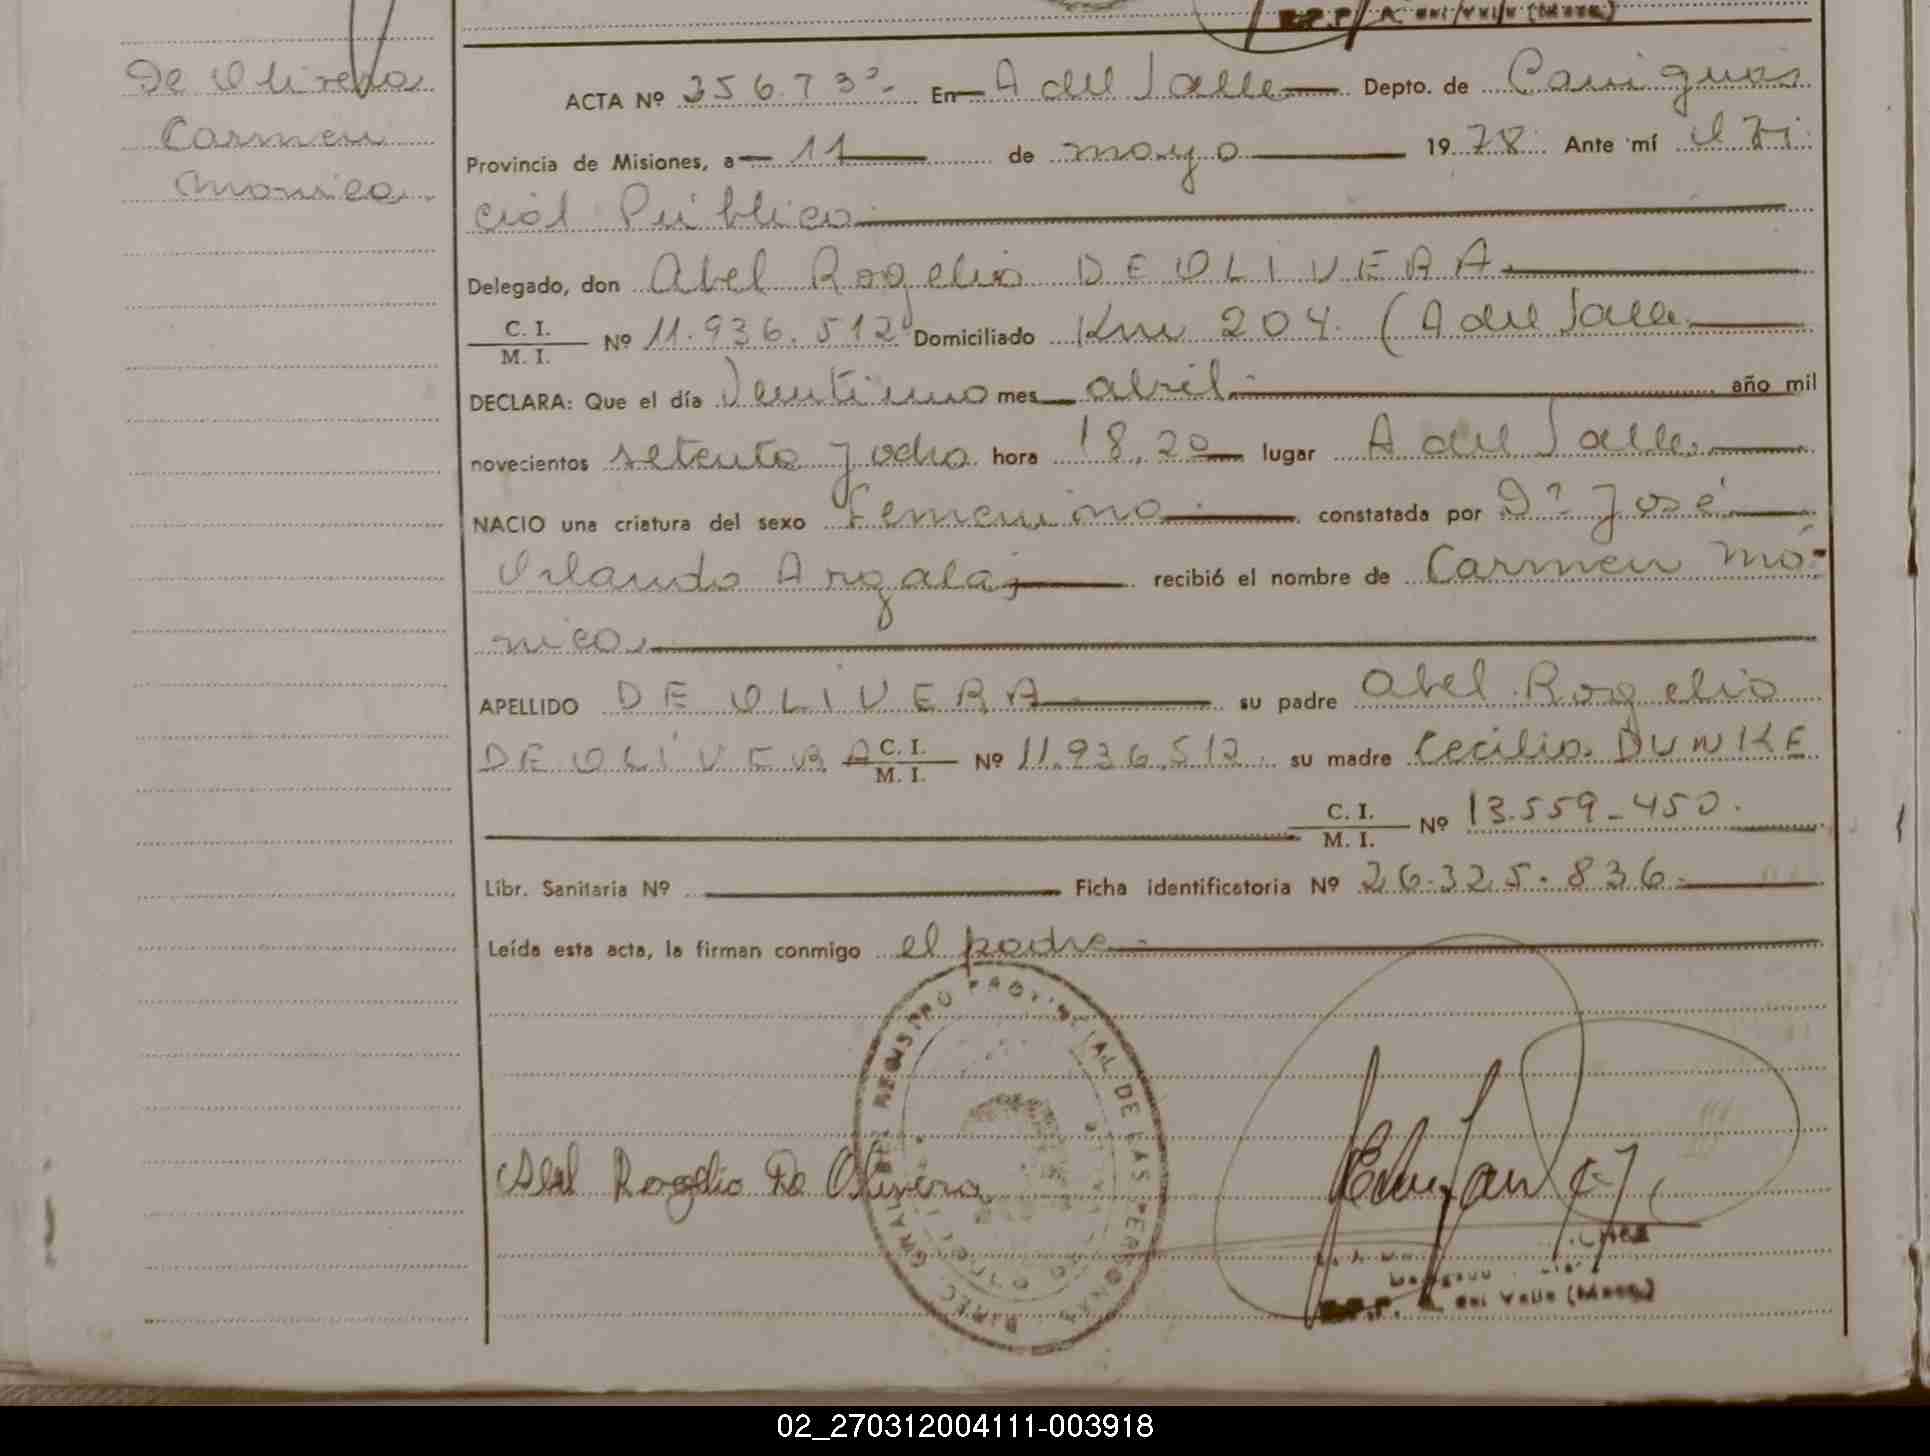 R.P.P. A. del Valle (Mnes.)
De Olivera
Carmen
Monica
ACTA Nº 356733- En A del Valle Depto. de Cainguás
Provincia de Misiones, a 11 de mayo 1978 Ante mí el Fi
cial Público
Delegado, don Abel Rogelio DE OLIVERA
C. I.
M. I. Nº 11.936.512 Domiciliado Km 204. (A del Valle
DECLARA: Que el día Veintiuno mes abril año mil
novecientos setenta y ocho hora 18,20 lugar A del Valle
NACIO una criatura del sexo Femenino constatada por Dº José
Orlando Argala recibió el nombre de Carmen Mó-
nica
APELLIDO DE OLIVERA su padre Abel Rogelio
DE OLIVERA C. I.
M. I. Nº 11.936.512 su madre Cecilia DUNKE
C. I.
M. I. Nº 13.559-450.
Libr. Sanitaria Nº Ficha identificatoria Nº 26.325.836
Leída esta acta, la firman conmigo el padre
REGISTRO PROVINCIAL DE LAS PERSONAS
Abel Rogelio De Olivera
R.P.P. A. del Valle (Mnes.)
02_270312004111-003918